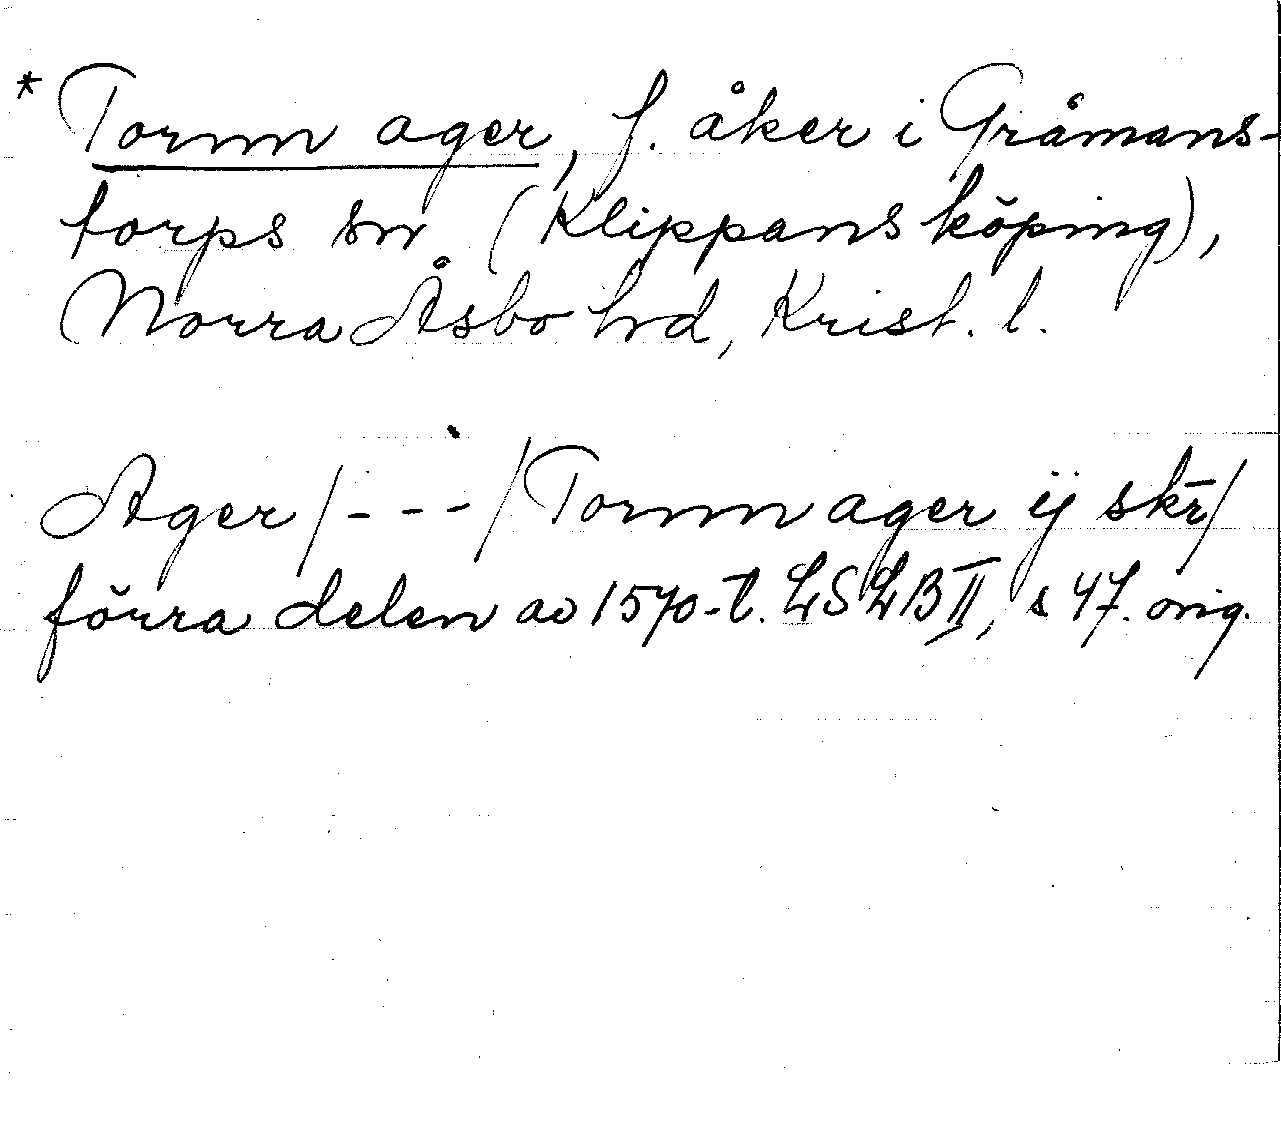 * Tornn ager, f. åker i Gråmans-
torps sn (Klippans köping),
Norra Åsbo hd, Krist. l.
Ager /---/ Tornn ager ij skr/
förra delen av 1570-t. LSLB II, s 47. orig.